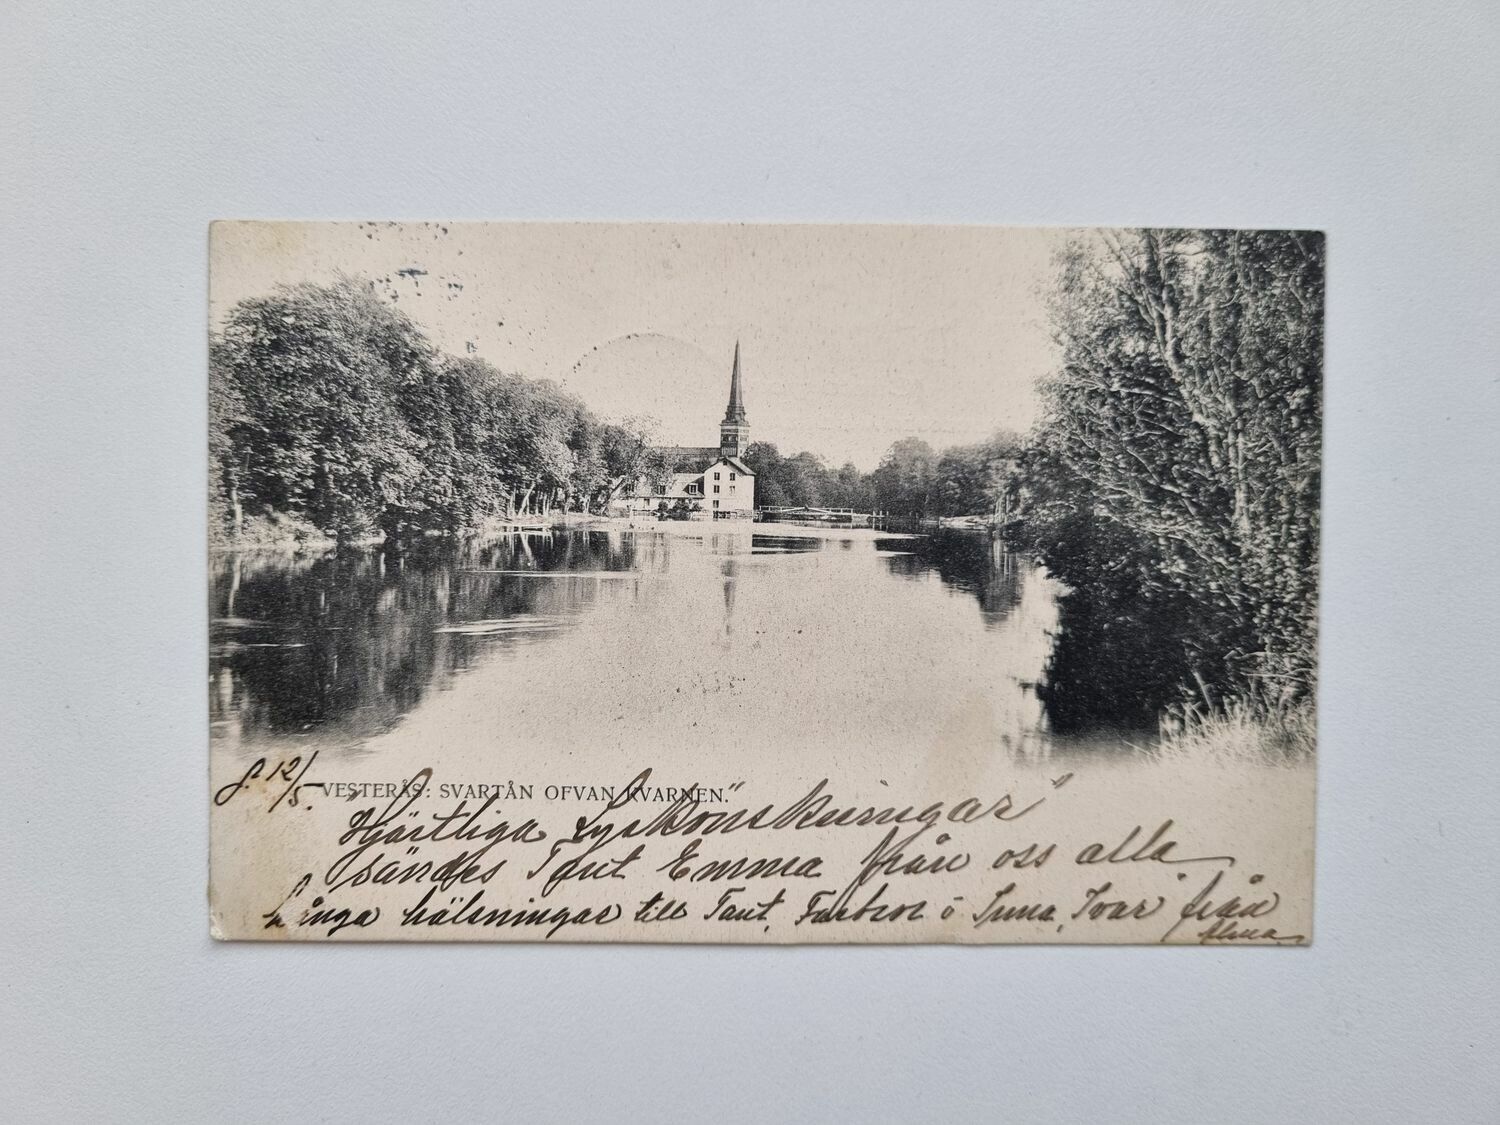 d. 12/5.
VESTERÅS: SVARTÅN OFVAN KVARNEN.
"Hjärtliga Lyckönskningar"
sändes Tant Emma från oss alla
Många hälsningar till Tant, Farbror o Tuna, Ivar från
Alma